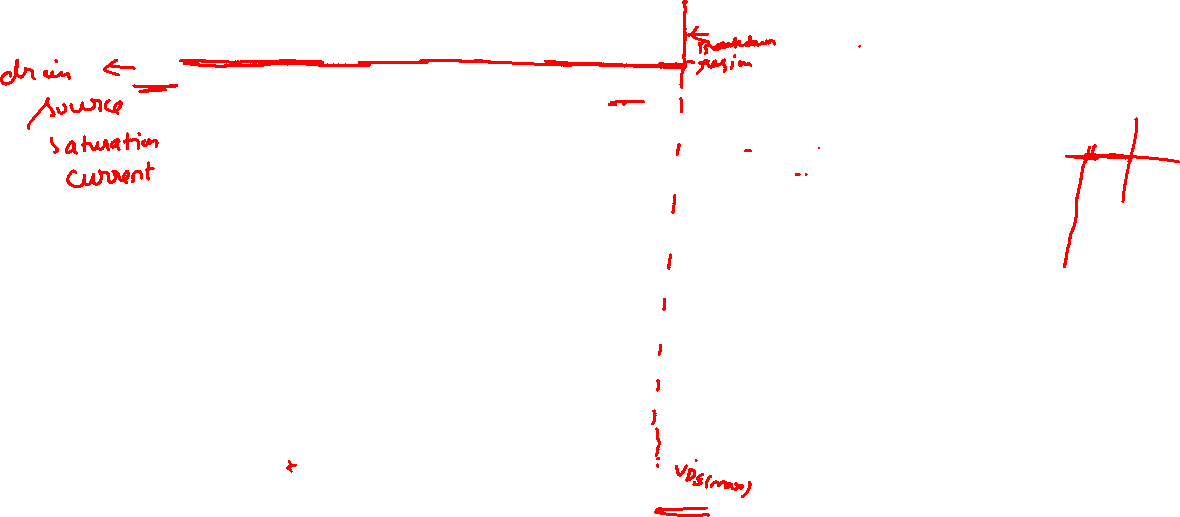 drain
source
saturation
current
Breakdown
region
VDS(max)